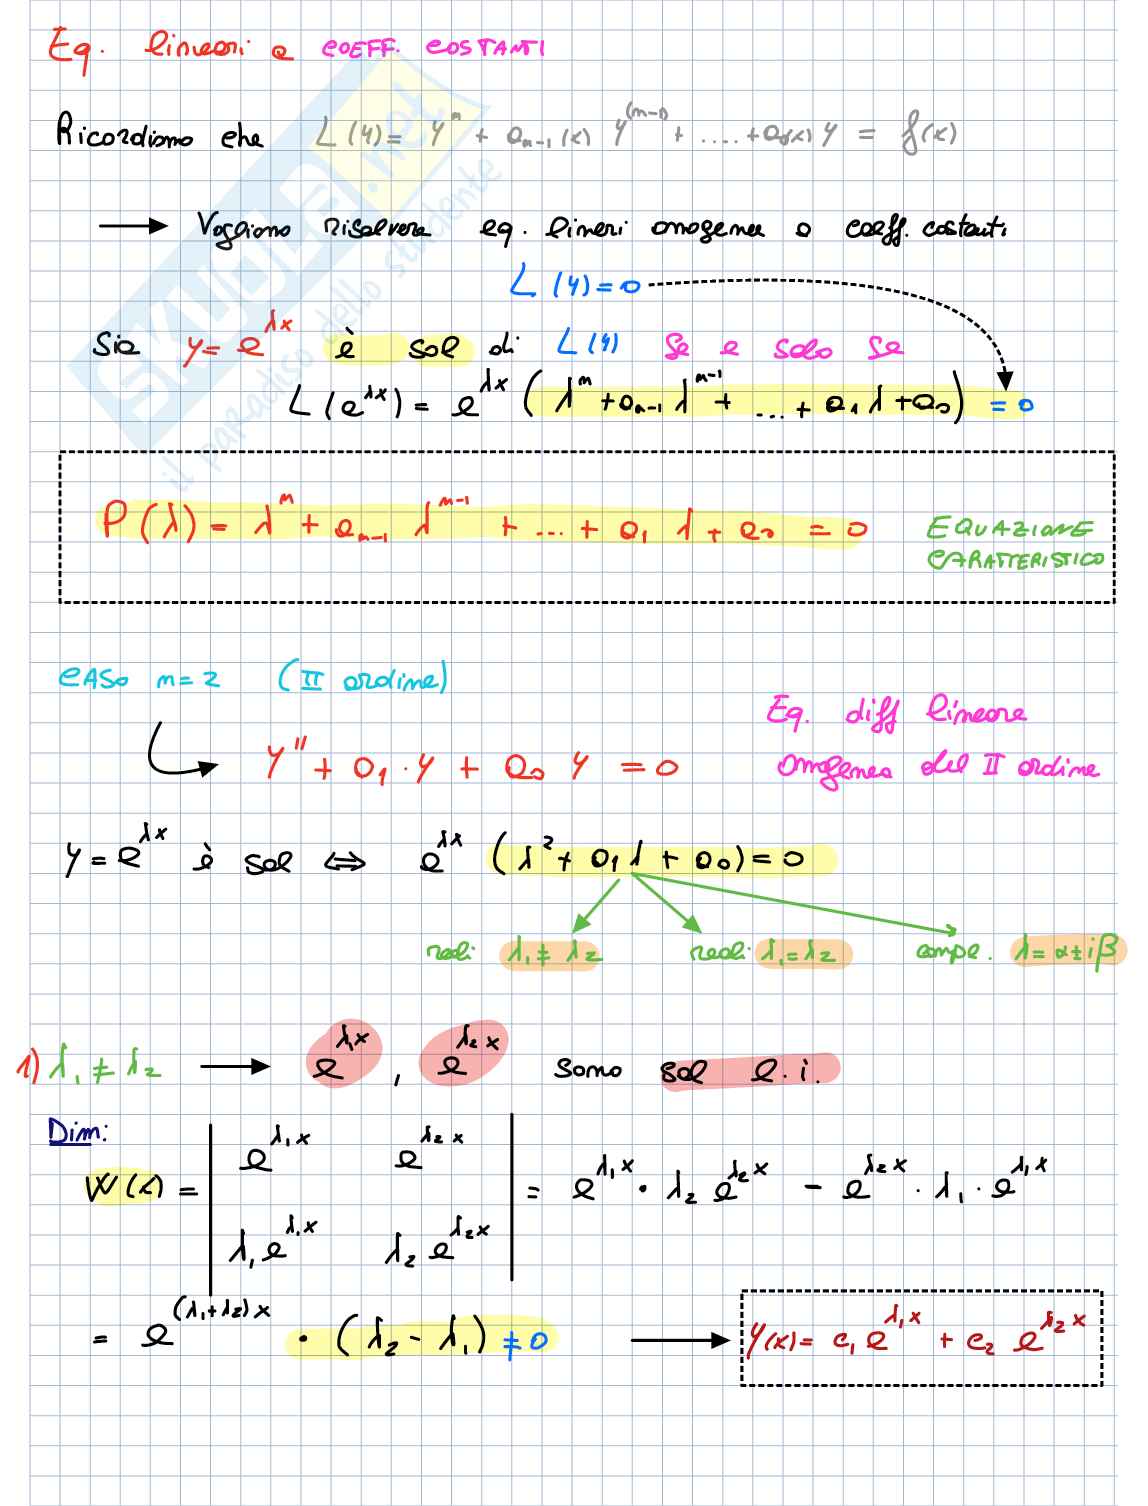 Eq. lineari a COEFF. COSTANTI
Ricordiamo che L(y) = yⁿ + aₙ₋₁(x) y⁽ⁿ⁻¹⁾ + .... + a₀(x) y = f(x)
→ Vogliamo risolvere eq. lineri omogenee a coeff. costanti
L(y) = 0
Sia y = e^{λx} è sol di L(y) se e solo se
L(e^{λx}) = e^{λx} (λⁿ + aₙ₋₁ λⁿ⁻¹ + ... + a₁ λ + a₀) = 0
P(λ) = λⁿ + aₙ₋₁ λⁿ⁻¹ + ... + a₁ λ + a₀ = 0 EQUAZIONE
CARATTERISTICO
CASO n = 2 (II ordine)
Eq. diff lineare
y'' + a₁ · y + a₀ y = 0 omogenea del II ordine
y = e^{λx} è sol ⇔ e^{λx} (λ² + a₁ λ + a₀) = 0
reali λ₁ ≠ λ₂ reali λ₁ = λ₂ compl. λ = α ± iβ
1) λ₁ ≠ λ₂ → e^{λ₁x} , e^{λ₂x} sono sol l.i.
Dim:
W(x) = | e^{λ₁x} e^{λ₂x} | = e^{λ₁x} · λ₂ e^{λ₂x} − e^{λ₂x} · λ₁ · e^{λ₁x}
λ₁ e^{λ₁x} λ₂ e^{λ₂x}
= e^{(λ₁+λ₂)x} · (λ₂ − λ₁) ≠ 0 → y(x) = c₁ e^{λ₁x} + c₂ e^{λ₂x}
SKUOLA.net
il paradiso dello studente